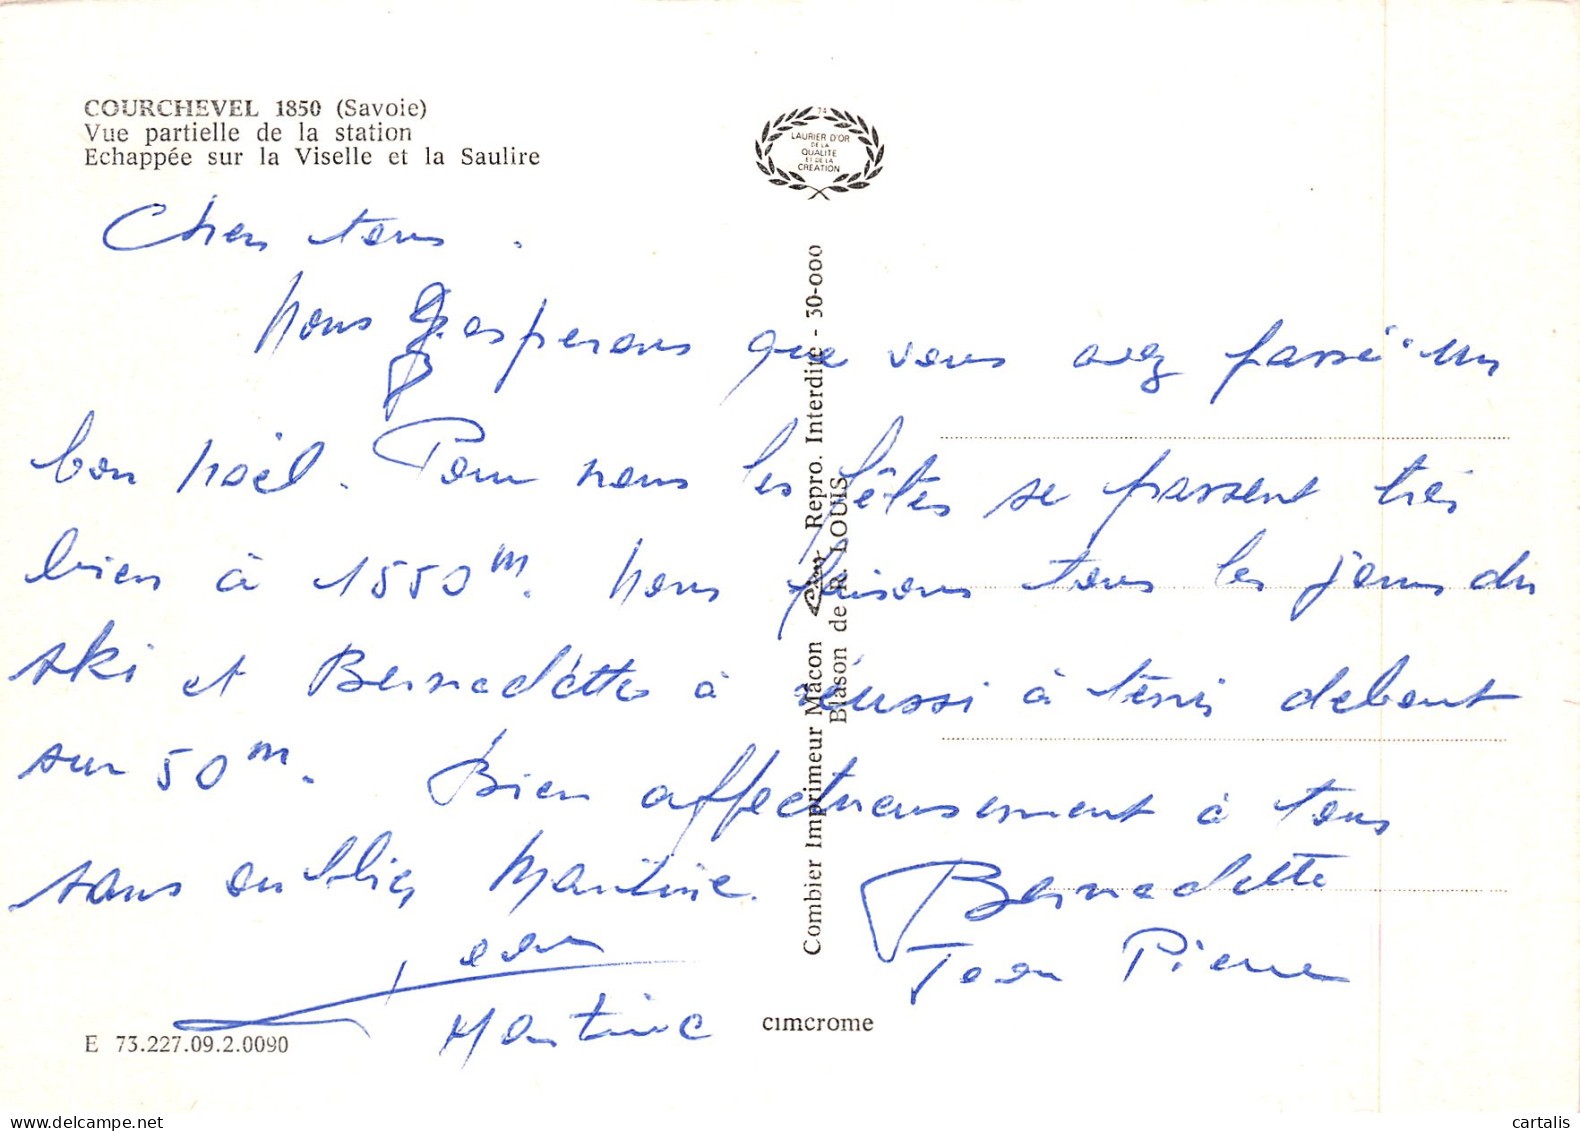 COURCHEVEL 1850 (Savoie)
Vue partielle de la station
Echappée sur la Viselle et la Saulire
74
LAURIER D'OR
DE LA
QUALITE
ET DE LA
CREATION
Chers tous.
Nous esperons que vous avez passé un
bon Noël. Pour nous les fêtes se passent très
bien à 1550 m. Nous faisons tous les jours du
ski et Bernadette à réussi à tenir debout
sur 50 m. Bien affectueusement à tous
sans oublier Martine. Bernadette
Jean
Jean Pierre
Martine
Combier Imprimeur Mâcon CIM Repro. Interdite - 30-000
Blason de R. LOUIS
cimcrome
E 73.227.09.2.0090
cartalis